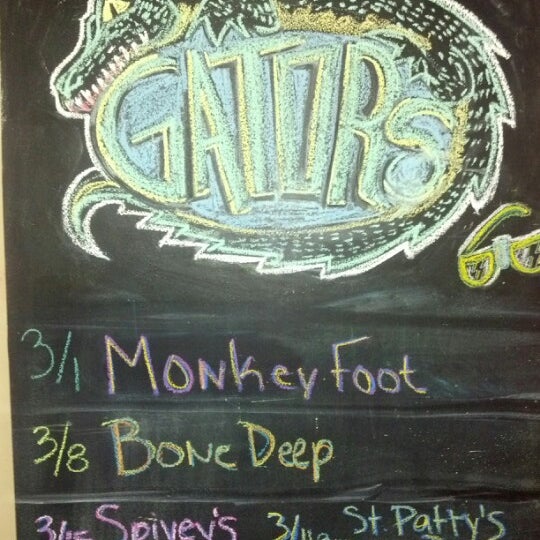 GATORS
3/1 Monkey Foot
3/8 Bone Deep
3/15 Spivey's St. Patty's